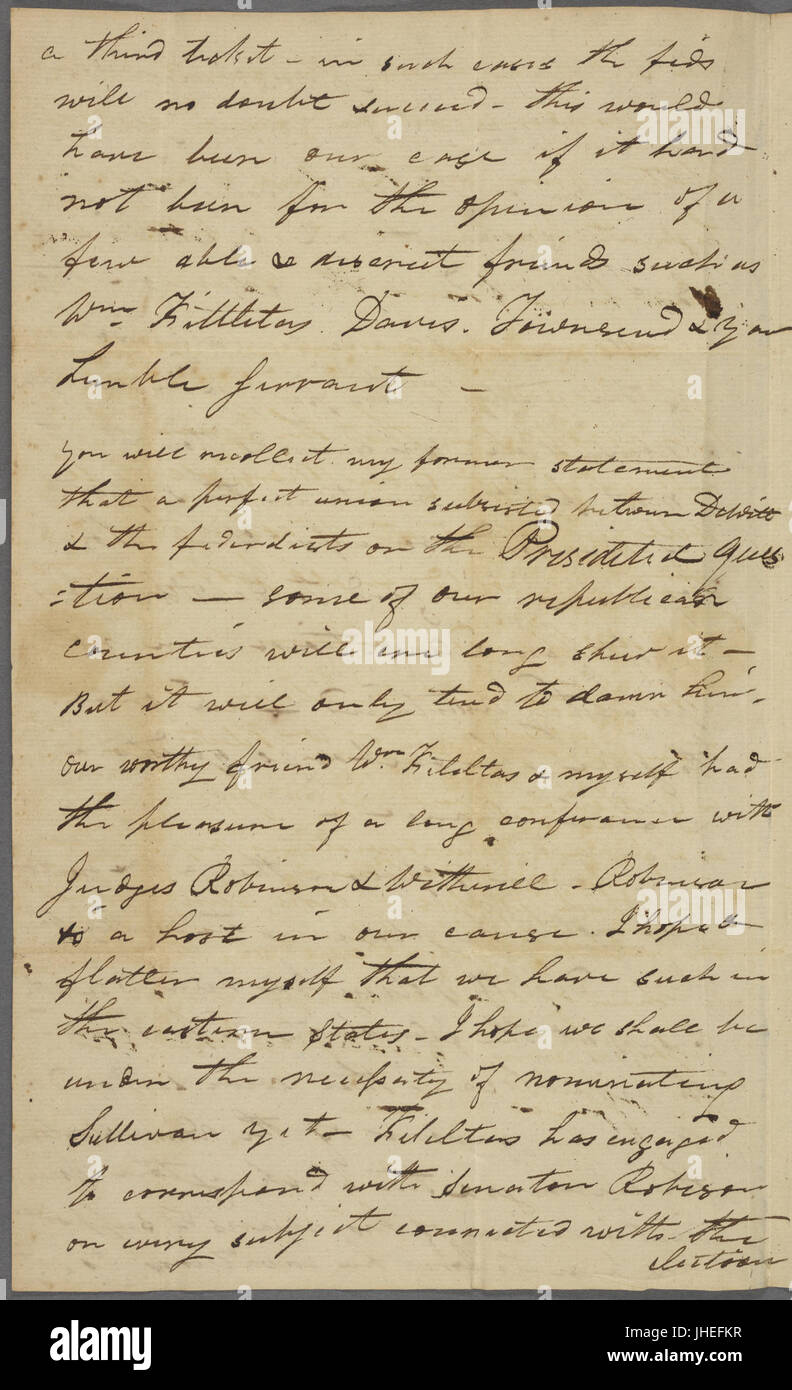 a third ticket – in such cases the feds
will no doubt succeed – this would
have been our case if it had
not been for the opinion of a
few able & discreet friends such as
Wm Filletas. Davis. Townsend & your
humble Servant –
you will recollect my former statement
that a perfect union subsisted between DeWitt
& the federalists on the Presidential Ques
:tion – some of our republican
counties will ere long shew it –
But it will only tend to damn him.
our worthy friend Wm Fileltas & myself had
the pleasure of a long conference with
Judges Robinson & Witherell – Robinson
is a host in our cause. I hope &
flatter myself that we have such in
the eastern states – I hope we shall be
under the necessity of nominating
Sullivan yet – Fileltas has engaged
to correspond with Senator Robison
on every subject connected with the
election
alamy stock photo
JHEFKR
www.alamy.com